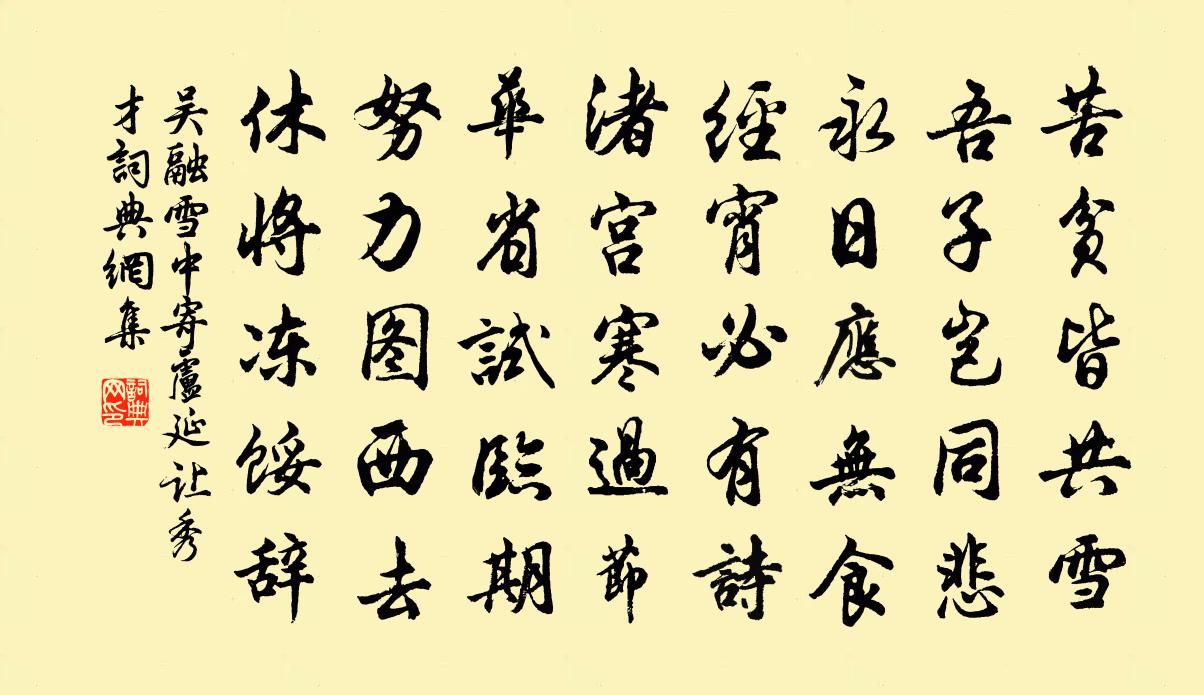 苦貧皆共雪
吾子豈同悲
永日應無食
經宵必有詩
渚宫寒過節
華省試臨期
努力图西去
休將冻馁辞
吴融雪中寄盧延让秀
才詞典網集
詞典网印